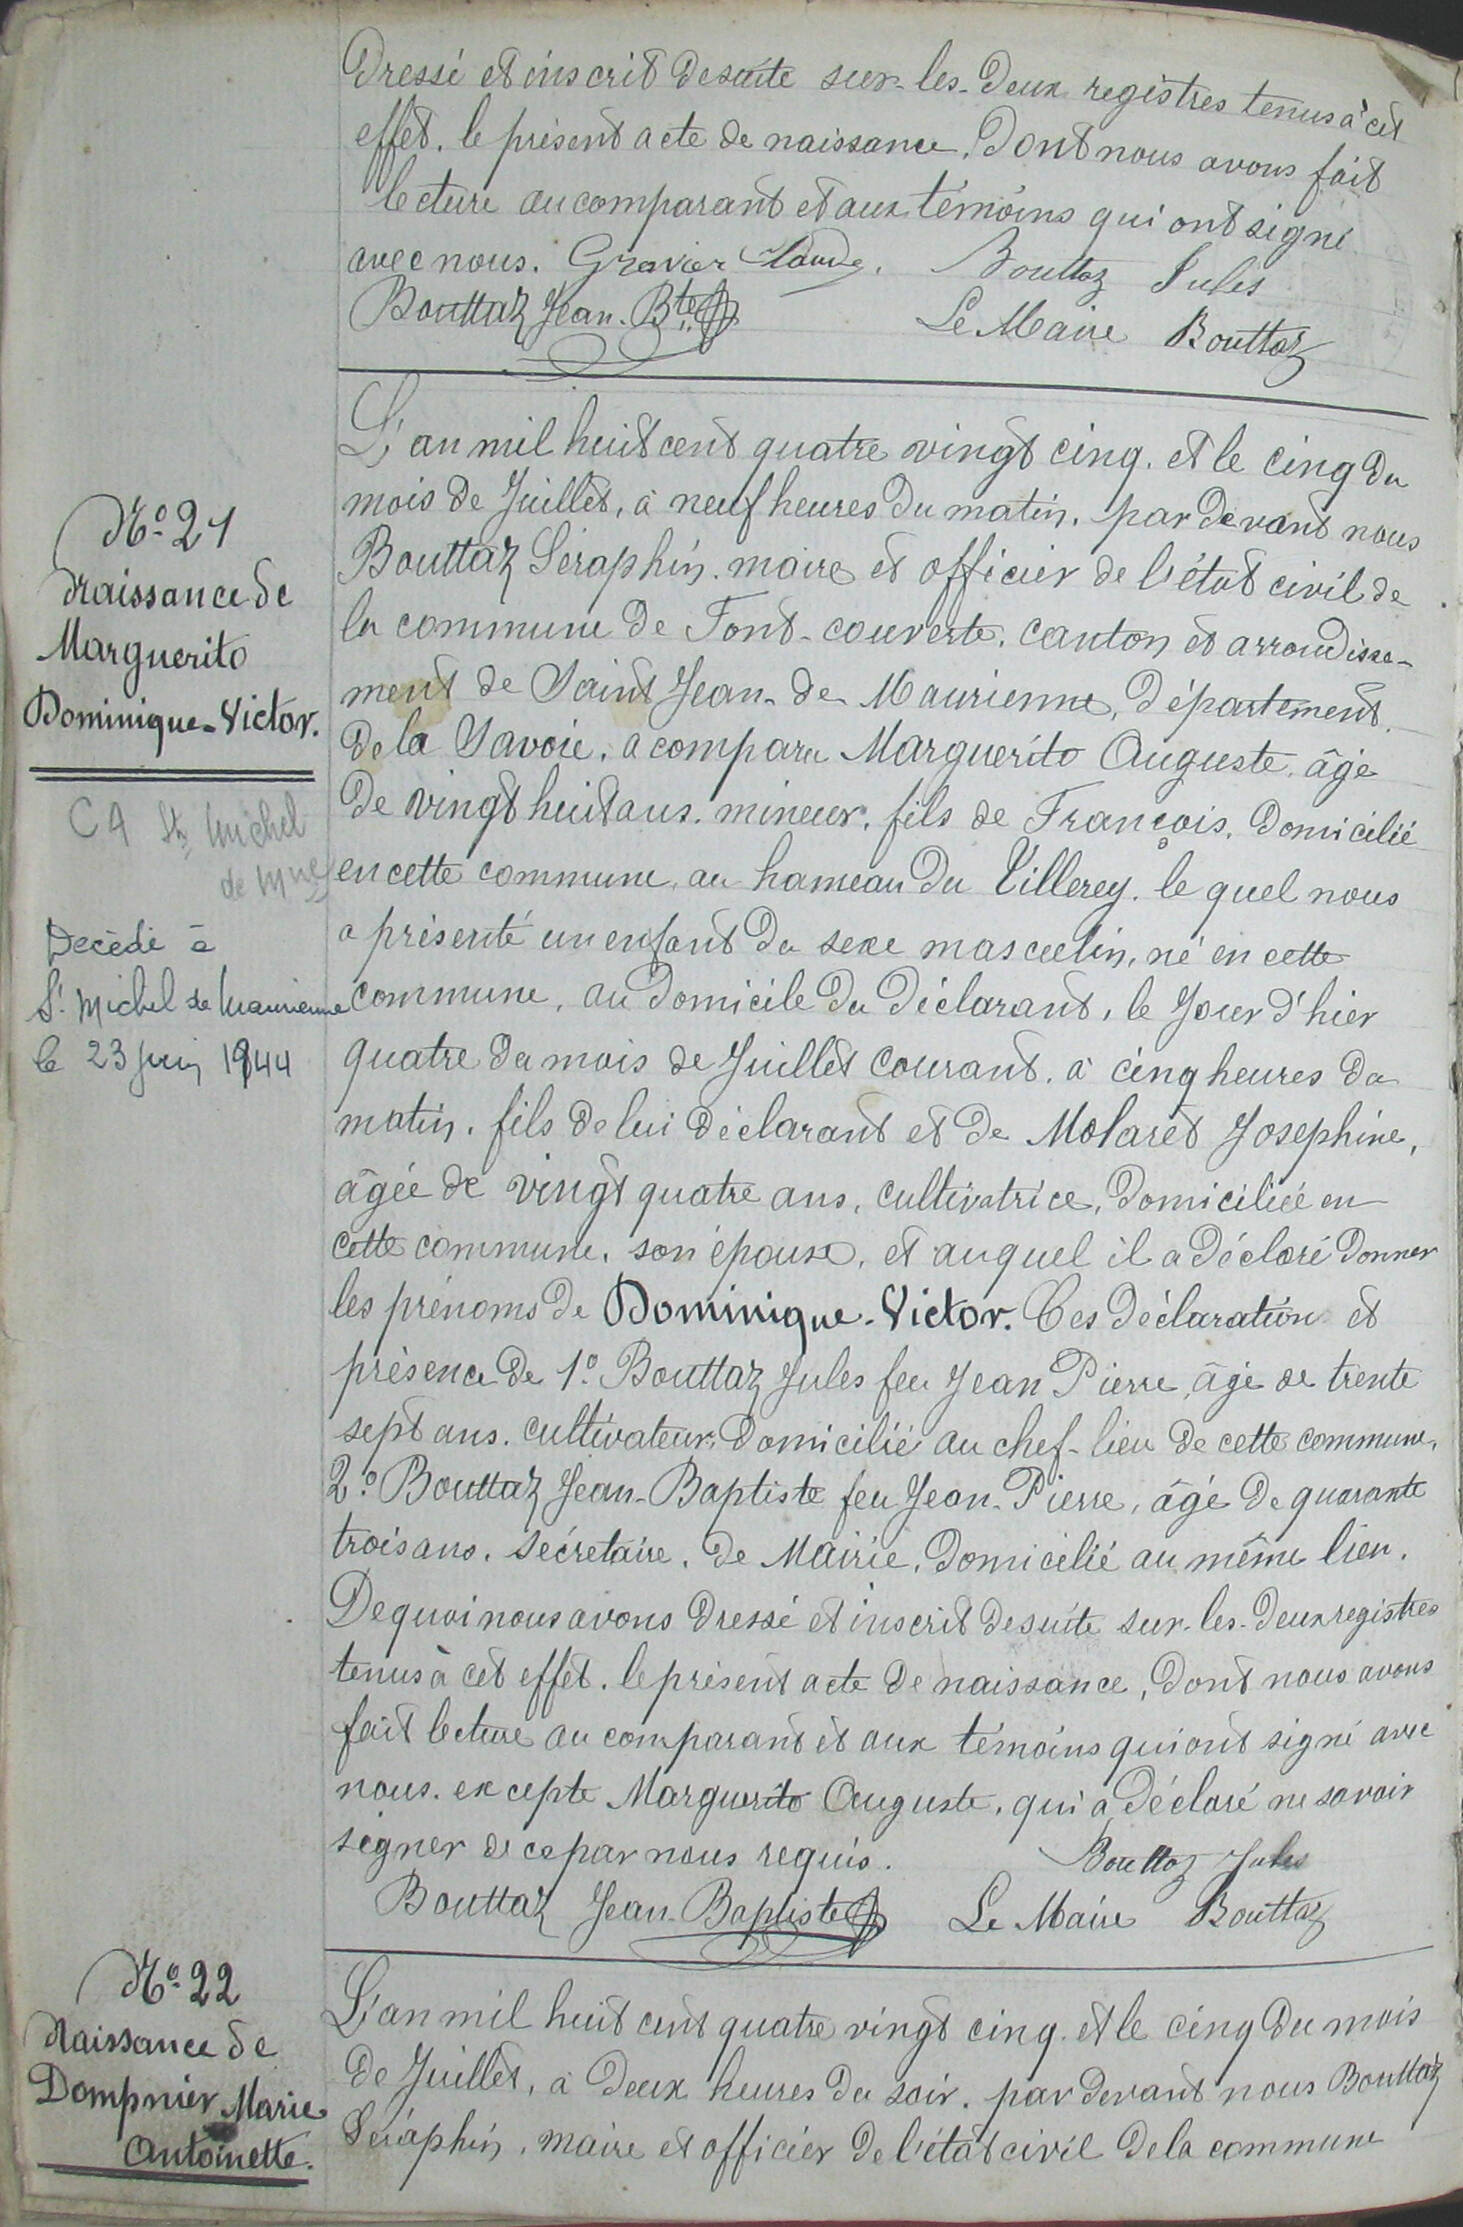 Dressé et inscrit desuite sur-les-deux registres tenus à cet
effet. le présent acte de naissance. Dont nous avons fait
lecture au comparant et aux témoins qui ont signé
avec nous. Gravier Claude. Bouttaz Jules
Bouttaz Jean-Bte Le Maire Bouttaz
N° 21
Naissance de
Marguerito
Dominique-Victor.
CA St Michel
de Mne
Décédé à
St Michel de Maurienne
le 23 juin 1944
L'an mil huit cent quatre vingt cinq. et le cinq du
mois de Juillet, à neuf heures du matin. par devant nous
Bouttaz Séraphin. maire et officier de l'état civil de
la commune de Font-couverte. canton et arrondisse-
ment de Saint Jean-de-Maurienne, Département
de la Savoie. a comparu Marguerito Auguste. âgé
de vingt huit ans. mineur. fils de François. domicilié
en cette commune au hameau du Villerey. le quel nous
a présenté un enfant du sexe masculin, né en cette
commune, au domicile du déclarant, le jour d'hier
quatre du mois de Juillet courant. à cinq heures du
matin. fils de lui déclarant et de Molaret Josephine,
âgée de vingt quatre ans, cultivatrice, domiciliée en
cette commune. son épouse, et auquel il a déclaré donner
les prénoms de Dominique-Victor. Ces déclaration et
présence de 1° Bouttaz Jules feu Jean Pierre, âgé de trente
sept ans. cultivateur, domicilié au chef-lieu de cette commune,
2° Bouttaz Jean-Baptiste feu Jean-Pierre, âgé de quarante
trois ans. sécretaire. de Mairie. domicilié au même lieu.
De quoi nous avons dressé et inscrit desuite sur-les-deux registres
tenus à cet effet. le présent acte de naissance, dont nous avons
fait lecture au comparant et aux témoins qui ont signé avec
nous. excepte Marguerito Auguste. qui a déclaré ne savoir
signer de ce par nous requis. Bouttaz Jules
Bouttaz Jean-Baptiste Le Maire Bouttaz
N° 22
Naissance de
Dompnier Marie
Antoinette.
L'an mil huit cent quatre vingt cinq. et le cinq du mois
de Juillet, à deux heures du soir. par devant nous Bouttaz
Séraphin, maire et officier de l'état civil de la commune